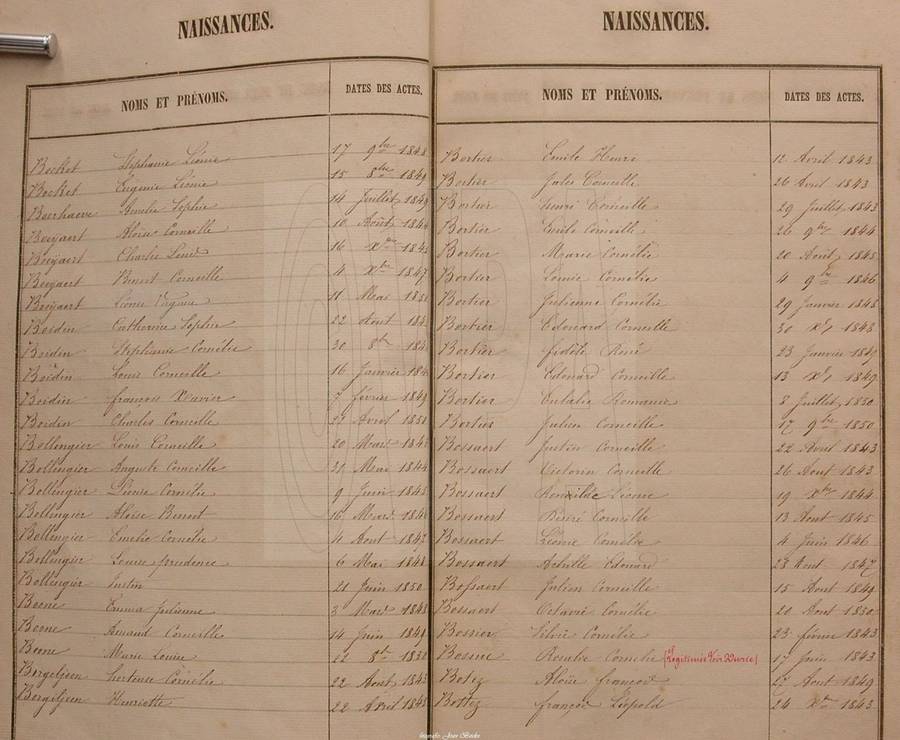 NAISSANCES.
NOMS ET PRÉNOMS. DATES DES ACTES.
Bocket Stephanie Léonie 17 9bre 1848
Bocket Eugenie Léonie 15 8bre 1849
Boerhaeve Amelie Sophie 14 Juillet
Boeyaert Aloïse Corneille 10 Août
Boeyaert Charles Louis 16 Xbre
Boeyaert Benoit Corneille 4 Xbre 1847
Boeyaert Virginie 11 Mai
Boidin Catherine Sophie 22 Aout
Boidin Stephanie Cornélie 30 8bre
Boidin Louis Corneille 16 Janvier
Boidin françois Xavier 7 février 1849
Boidin Charles Corneille 23 Avril
Bollengier Louis Corneille 20 Mars
Bollengier Auguste Corneille 31 Mai 1844
Bollengier Louise Cornélie 9 Juin 1845
Bollengier Aloïse Benoit 16 Mars
Bollengier Emelie Cornélie 4 Aout 1847
Bollengier Louise prudence 6 Mai 1848
Bollengier Justin 21 Juin 1850
Bonne Emma Julienne 3 Mars
Bonne Armand Corneille 14 Juin 1849
Bonne Marie Louise 22 8bre
Borgeljoen hortence Cornélie 22 Août
Borgeljoen Henriette 22 Avril 1843
NAISSANCES.
NOMS ET PRÉNOMS. DATES DES ACTES.
Bortier Emile Henri 12 Avril 1843
Bortier Jules Corneille 26 Avril 1843
Bortier henri Corneille 29 Juillet 1843
Bortier Emile Corneille 26 9bre 1844
Bortier Marie Cornélie 20 Août 1845
Bortier Léonie Cornélie 4 9bre 1846
Bortier Julienne Cornélie 29 Janvier 1848
Bortier Edouard Corneille 30 Xbre 1848
Bortier fidèle René 23 Janvier 1849
Bortier Edouard Corneille 13 Xbre 1849
Bortier Eulalie Romanie 8 Juillet 1850
Bortier Julien Corneille 17 9bre 1850
Bossaert Justin Corneille 22 Avril 1843
Bossaert Victorin Corneille 26 Aout 1843
Bossaert Romilde Léonie 19 Xbre 1844
Bossaert Désiré Corneille 13 Aout 1845
Bossaert Léonie Cornélie 4 Juin 1846
Bossaert Achille Edouard 28 Aout 1847
Bossaert Julien Corneille 15 Aout 1849
Bossaert Octavie Cornélie 20 Aout 1850
Bossier Silvie Cornélie 23 févrir 1843
Rosalie Cornélie (Légitimée Voir 17 Juin 1843
Botez Aloïse françois 27 Aout 1849
Bottez françois Léopold 24 Xbre 1843